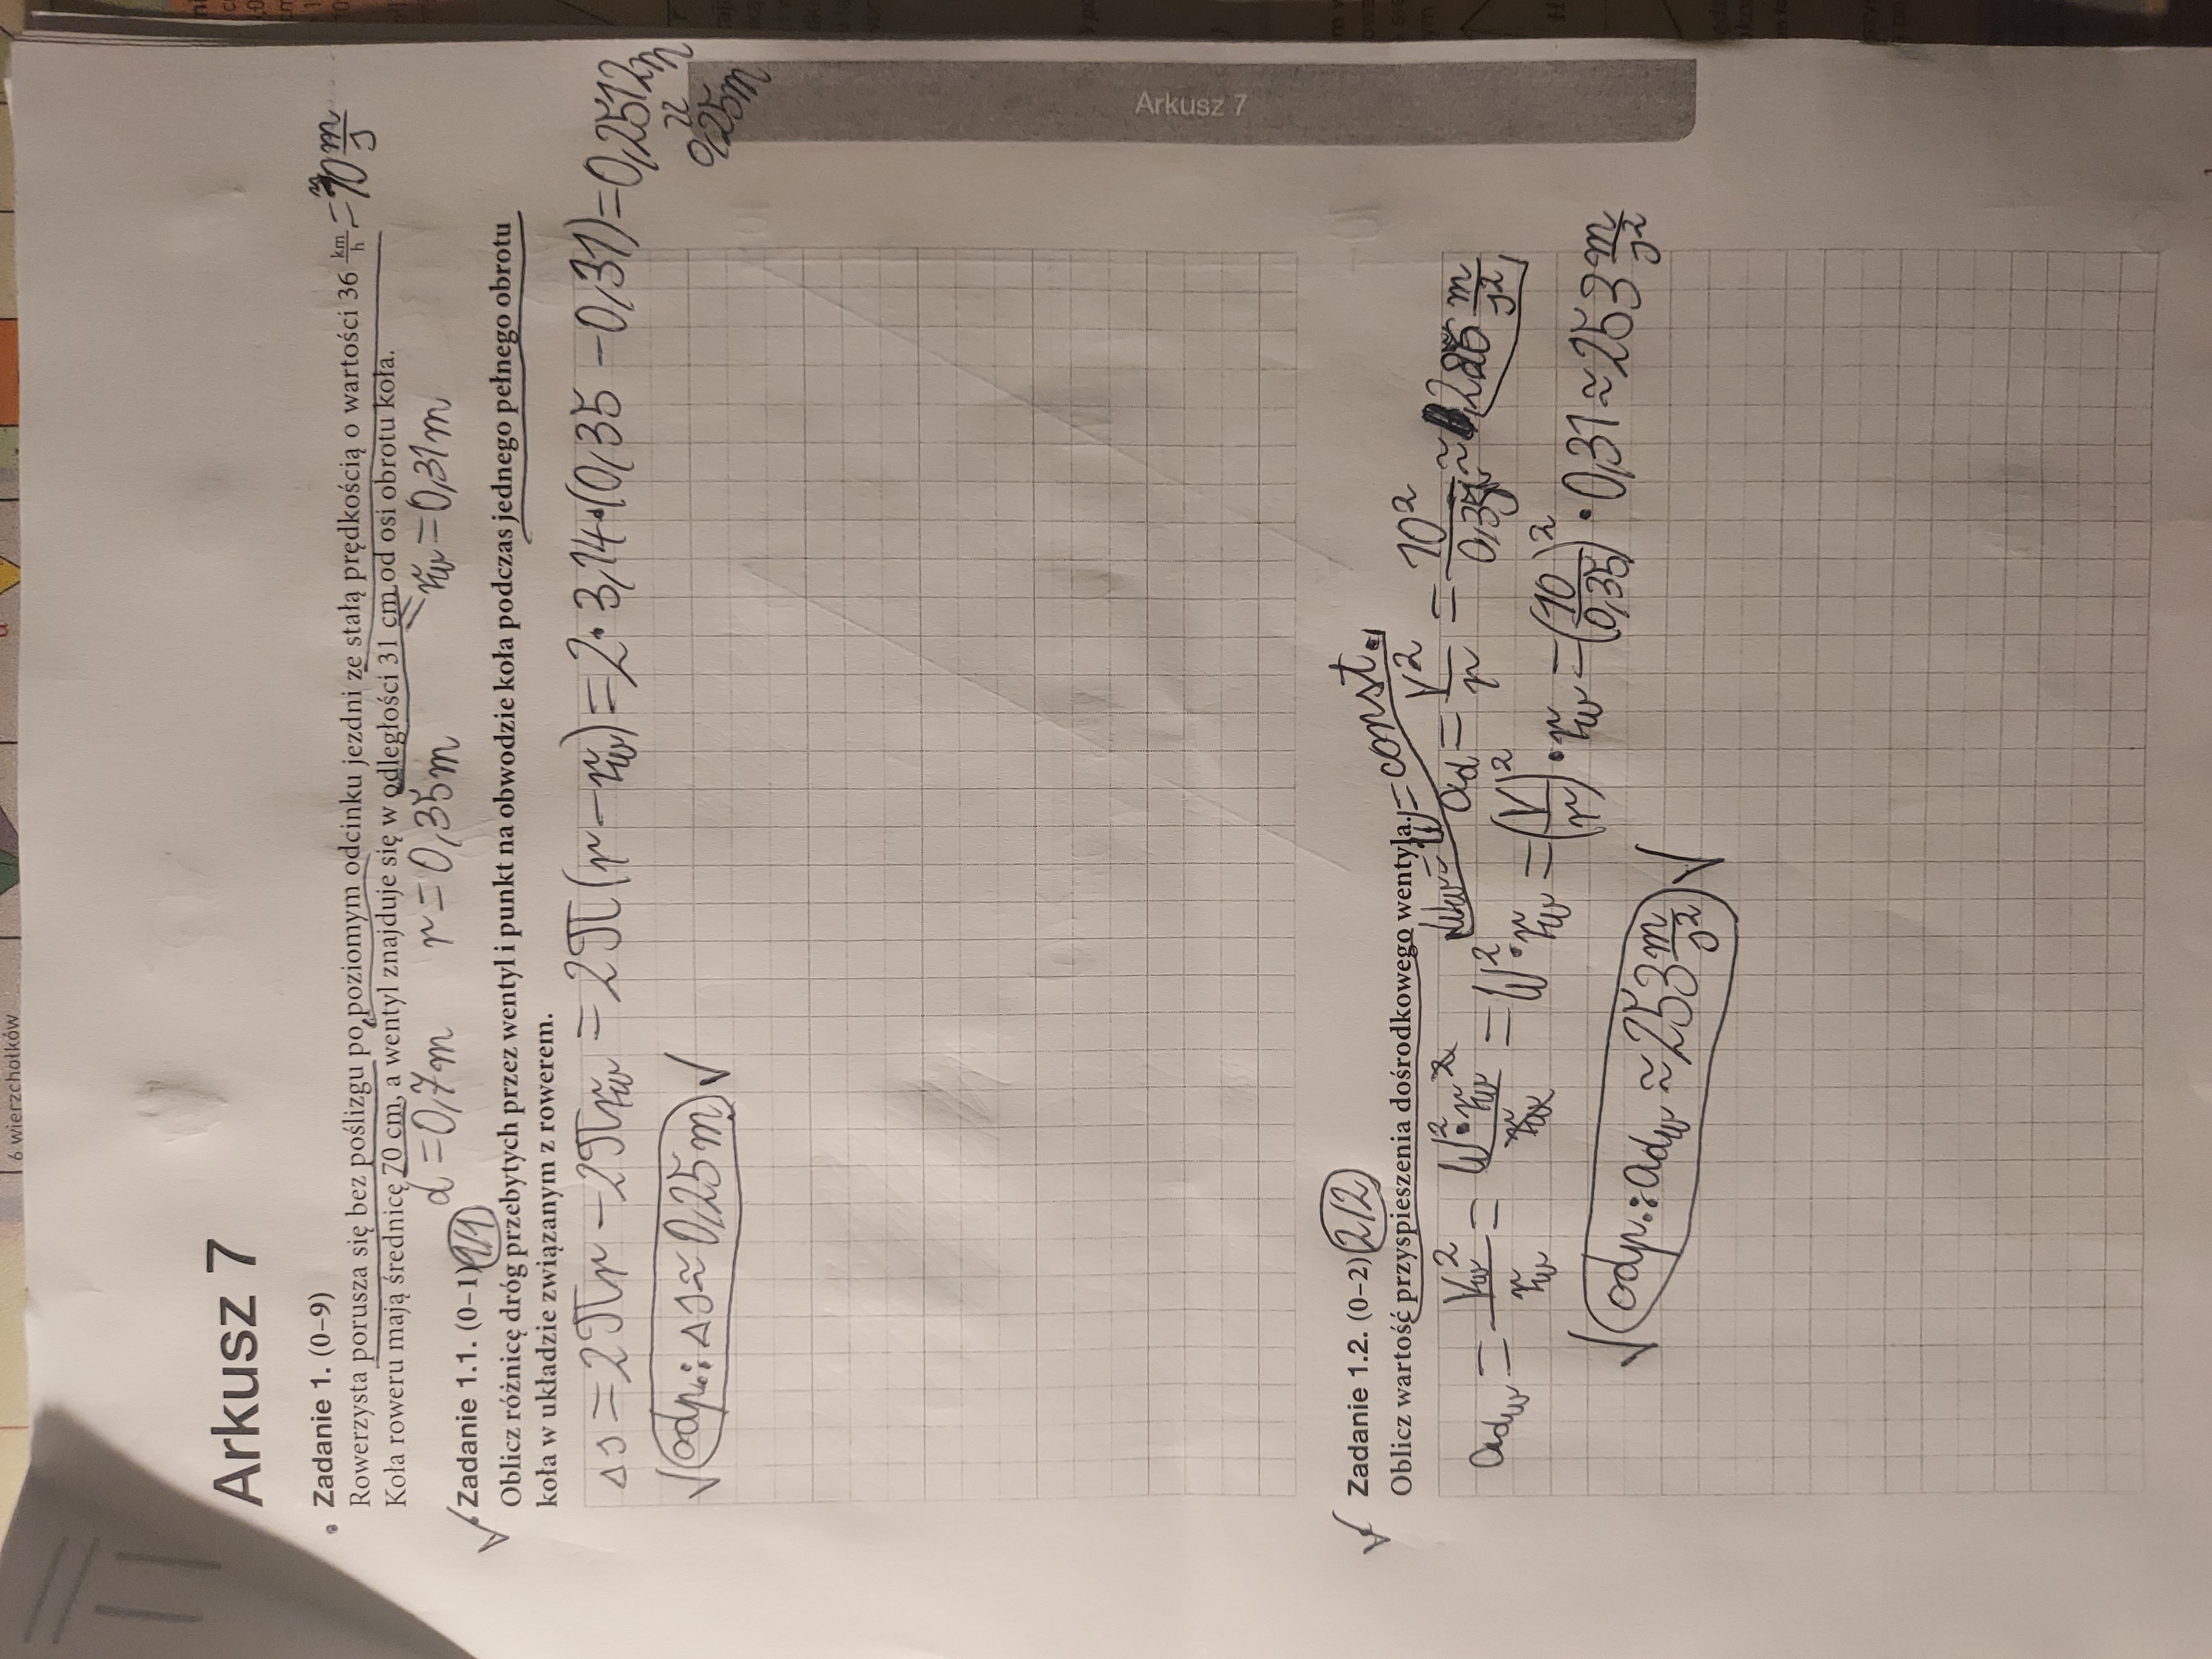 6 wierzchołków
Arkusz 7
Zadanie 1. (0–9)
Rowerzysta porusza się bez poślizgu po poziomym odcinku jezdni ze stałą prędkością o wartości 36 km/h = 10 m/s
Koła roweru mają średnicę 70 cm, a wentyl znajduje się w odległości 31 cm od osi obrotu koła.
d = 0,7m r = 0,35m r_w = 0,31m
Zadanie 1.1. (0–1) 1/1
Oblicz różnicę dróg przebytych przez wentyl i punkt na obwodzie koła podczas jednego pełnego obrotu
koła w układzie związanym z rowerem.
Δs = 2πr − 2πr_w = 2π(r − r_w) = 2·3,14·(0,35 − 0,31) = 0,2512m
≈ 0,25m
√ odp.: Δs ≈ 0,25m √
Arkusz 7
Zadanie 1.2. (0–2) 2/2
Oblicz wartość przyspieszenia dośrodkowego wentyla.
ω_w = ω = const.
a_d = v²/r = 10²/0,35 ≈ 285 m/s²
a_dw = v_w²/r_w = ω²·r_w²/r_w = ω²·r_w = (v/r)²·r_w = (10/0,35)²·0,31 ≈ 253 m/s²
√ odp.: a_dw ≈ 253 m/s² √